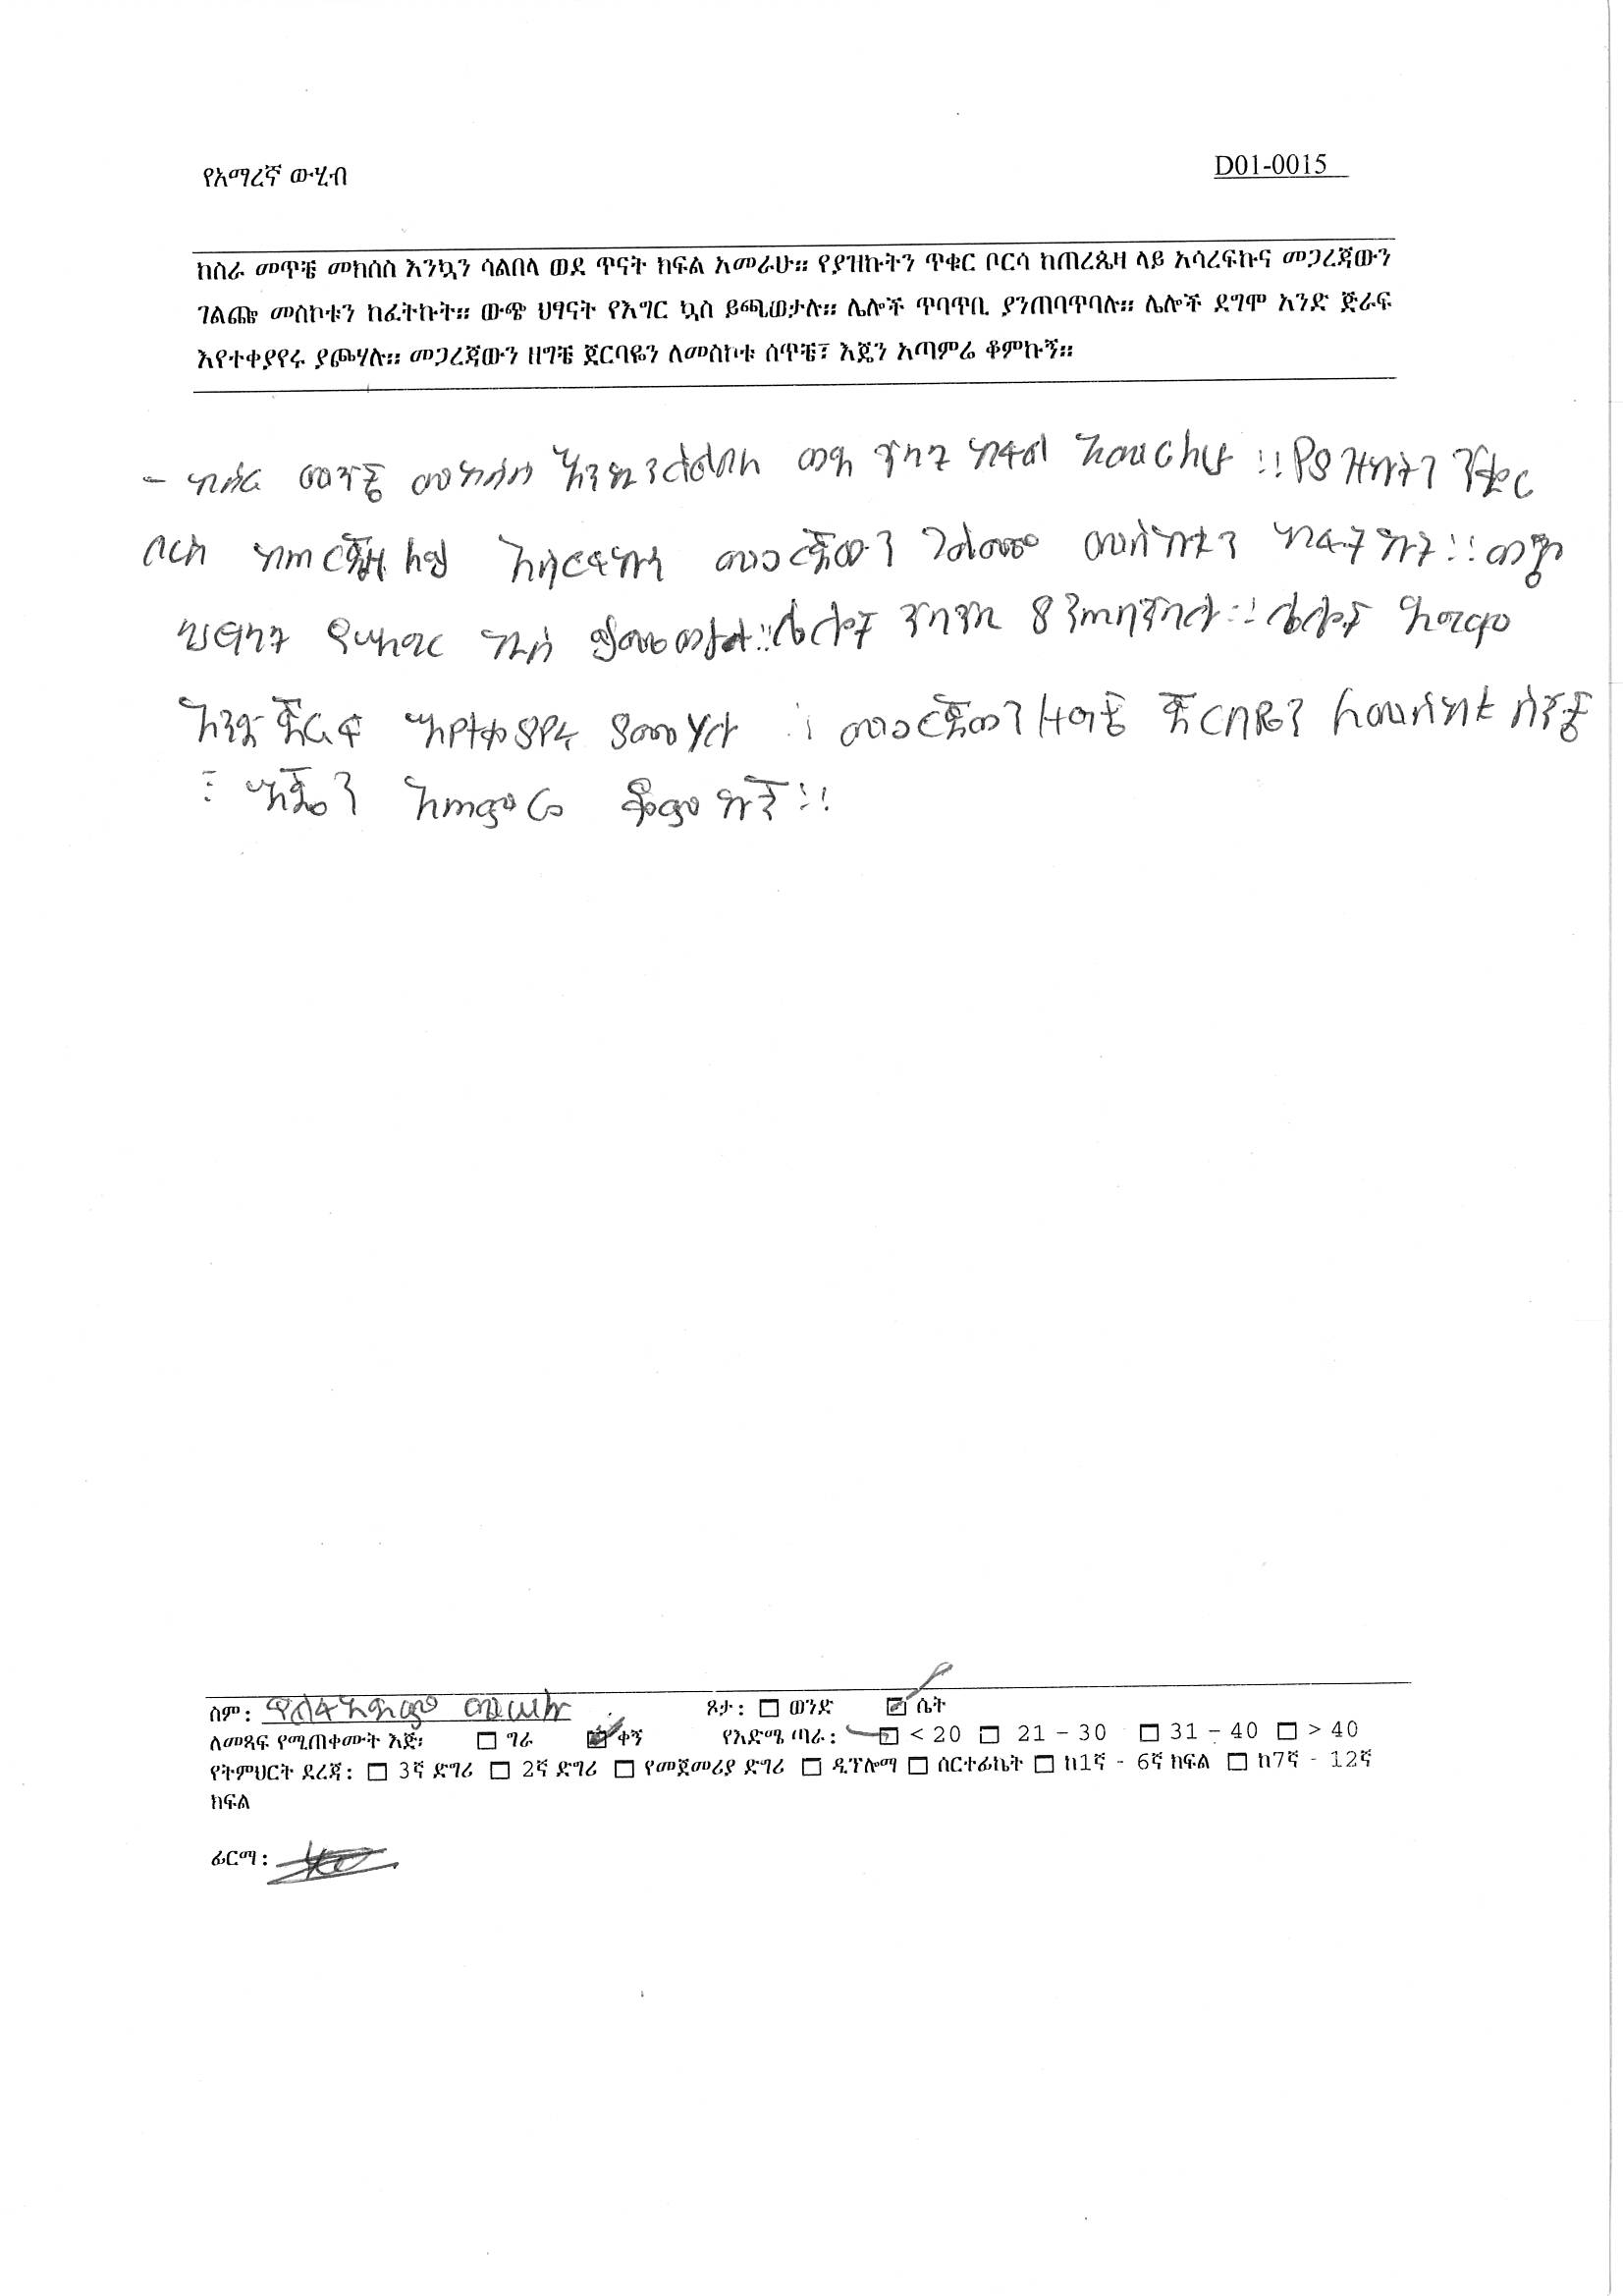 የአማረኛ ውሂብ D01-0015
ከስራ መጥቼ መክሰስ እንኳን ሳልበላ ወደ ጥናት ክፍል አመራሁ። የያዝኩትን ጥቁር ቦርሳ ከጠረጴዛ ላይ አሳረፍኩና መጋረጃውን
ገልጬ መስኮቱን ከፈትኩት። ውጭ ህፃናት የእግር ኳስ ይጫወታሉ። ሌሎች ጥባጥቢ ያንጠባጥባሉ። ሌሎች ደግሞ አንድ ጅራፍ
እየተቀያየሩ ያጮሃሉ። መጋረጃውን ዘግቼ ጀርባዬን ለመስኮቱ ሰጥቼ፣ እጄን አጣምሬ ቆምኩኝ።
- ከስራ መጥቼ መክሰስ እንኳን ሳልበላ ወደ ጥናት ክፍል አመራሁ ።የያዝኩትን ጥቁር
ቦርሳ ላይ መጋረጃውን መስኮቱን ከፈትኩት።
ህፃናት የእግር ኳስ ሌሎች ጥባጥቢ ያንጠባጥባሉ። ሌሎች
አንድ ጅራፍ እየተቀያየሩ መጋረጃውን ዘግቼ ጀርባዬን ለመስኮቱ ሰጥቼ
፣ እጄን አጣምሬ ቆምኩኝ።
ስም: ጾታ: ወንድ ሴት
ለመጻፍ የሚጠቀሙት እጅ፡ ግራ ቀኝ የእድሜ ጣራ: < 20 21 - 30 31 - 40 > 40
የትምህርት ደረጃ: 3ኛ ድግሪ 2ኛ ድግሪ የመጀመሪያ ድግሪ ዲፕሎማ ሰርተፊኬት ከ1ኛ - 6ኛ ክፍል ከ7ኛ - 12ኛ
ክፍል
ፊርማ: